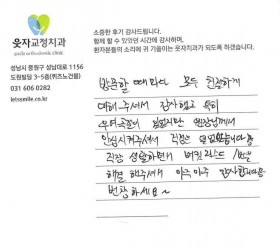 웃자교정치과
성남시 중원구 성남대로 1156
도원빌딩 3~5층(퀴즈노건물)
031 606 0282
letssmile.co.kr
소중한 후기 감사드립니다.
함께 할 수 있었던 시간에 감사하며,
환자분들의 소리에 귀 기울이는 웃자교정치과가 되도록 하겠습니다.
방문할 때마다 모두 친절하게
대해 주셔서 감사했고 특히
우여곡절이 있었지만 원장님께서
안심시켜주셔서 걱정은 없었습니다
직장 생활하면서 버킷리스트
해결 해주셔서 아주 아주 감사합니다
번창하세요~